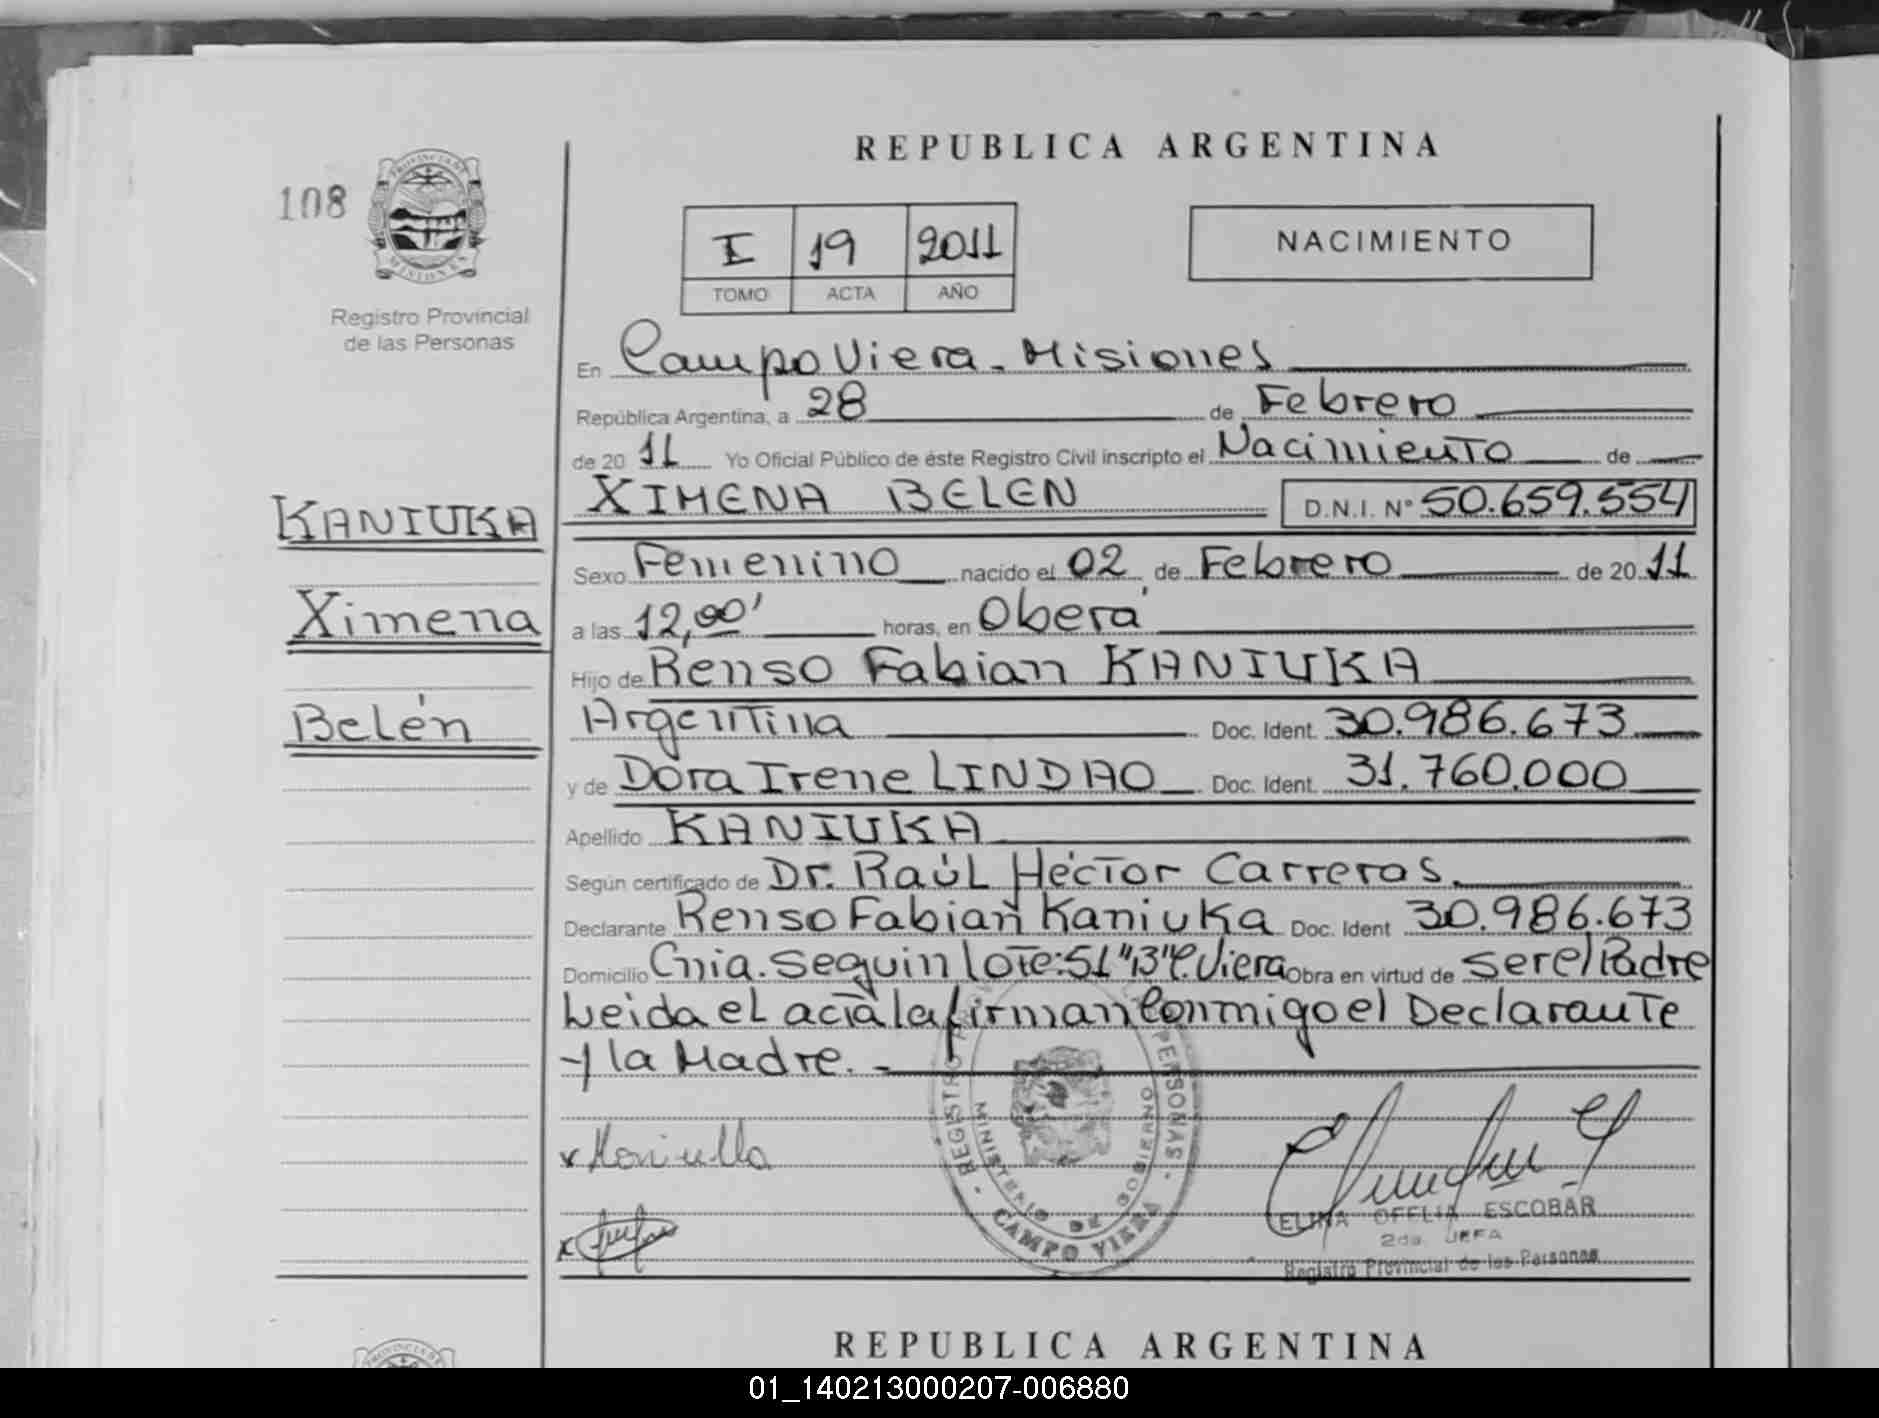 REPUBLICA ARGENTINA
108
PROVINCIA DE
MISIONES
Registro Provincial
de las Personas
I 19 2011
TOMO ACTA AÑO
NACIMIENTO
En Campo Viera - Misiones
República Argentina, a 28 de Febrero
de 20 11 Yo Oficial Público de éste Registro Civil inscripto el Nacimiento de
XIMENA BELEN D.N.I. N° 50.659.554
KANIUKA
Ximena
Belén
Sexo Femenino nacido el 02 de Febrero de 20 11
a las 12,00' horas, en Oberá
Hijo de Renso Fabian KANIUKA
Argentina Doc. Ident. 30.986.673
y de Dora Irene LINDAO Doc. Ident. 31.760.000
Apellido KANIUKA
Según certificado de Dr. Raúl Héctor Carreras.
Declarante Renso Fabian Kaniuka Doc. Ident 30.986.673
Domicilio Cnia. Seguin lote:51"B"C.Viera Obra en virtud de ser el Padre
Leida el acta la firman Conmigo el Declarante
y la Madre. -
REGISTRO PERSONAS
MINISTERIO DE GOBIERNO
CAMPO VIERA
ELINA OFELIA ESCOBAR
2da. JEFA
Registro Provincial de las Personas
REPUBLICA ARGENTINA
PROVINCIA DE
01_140213000207-006880